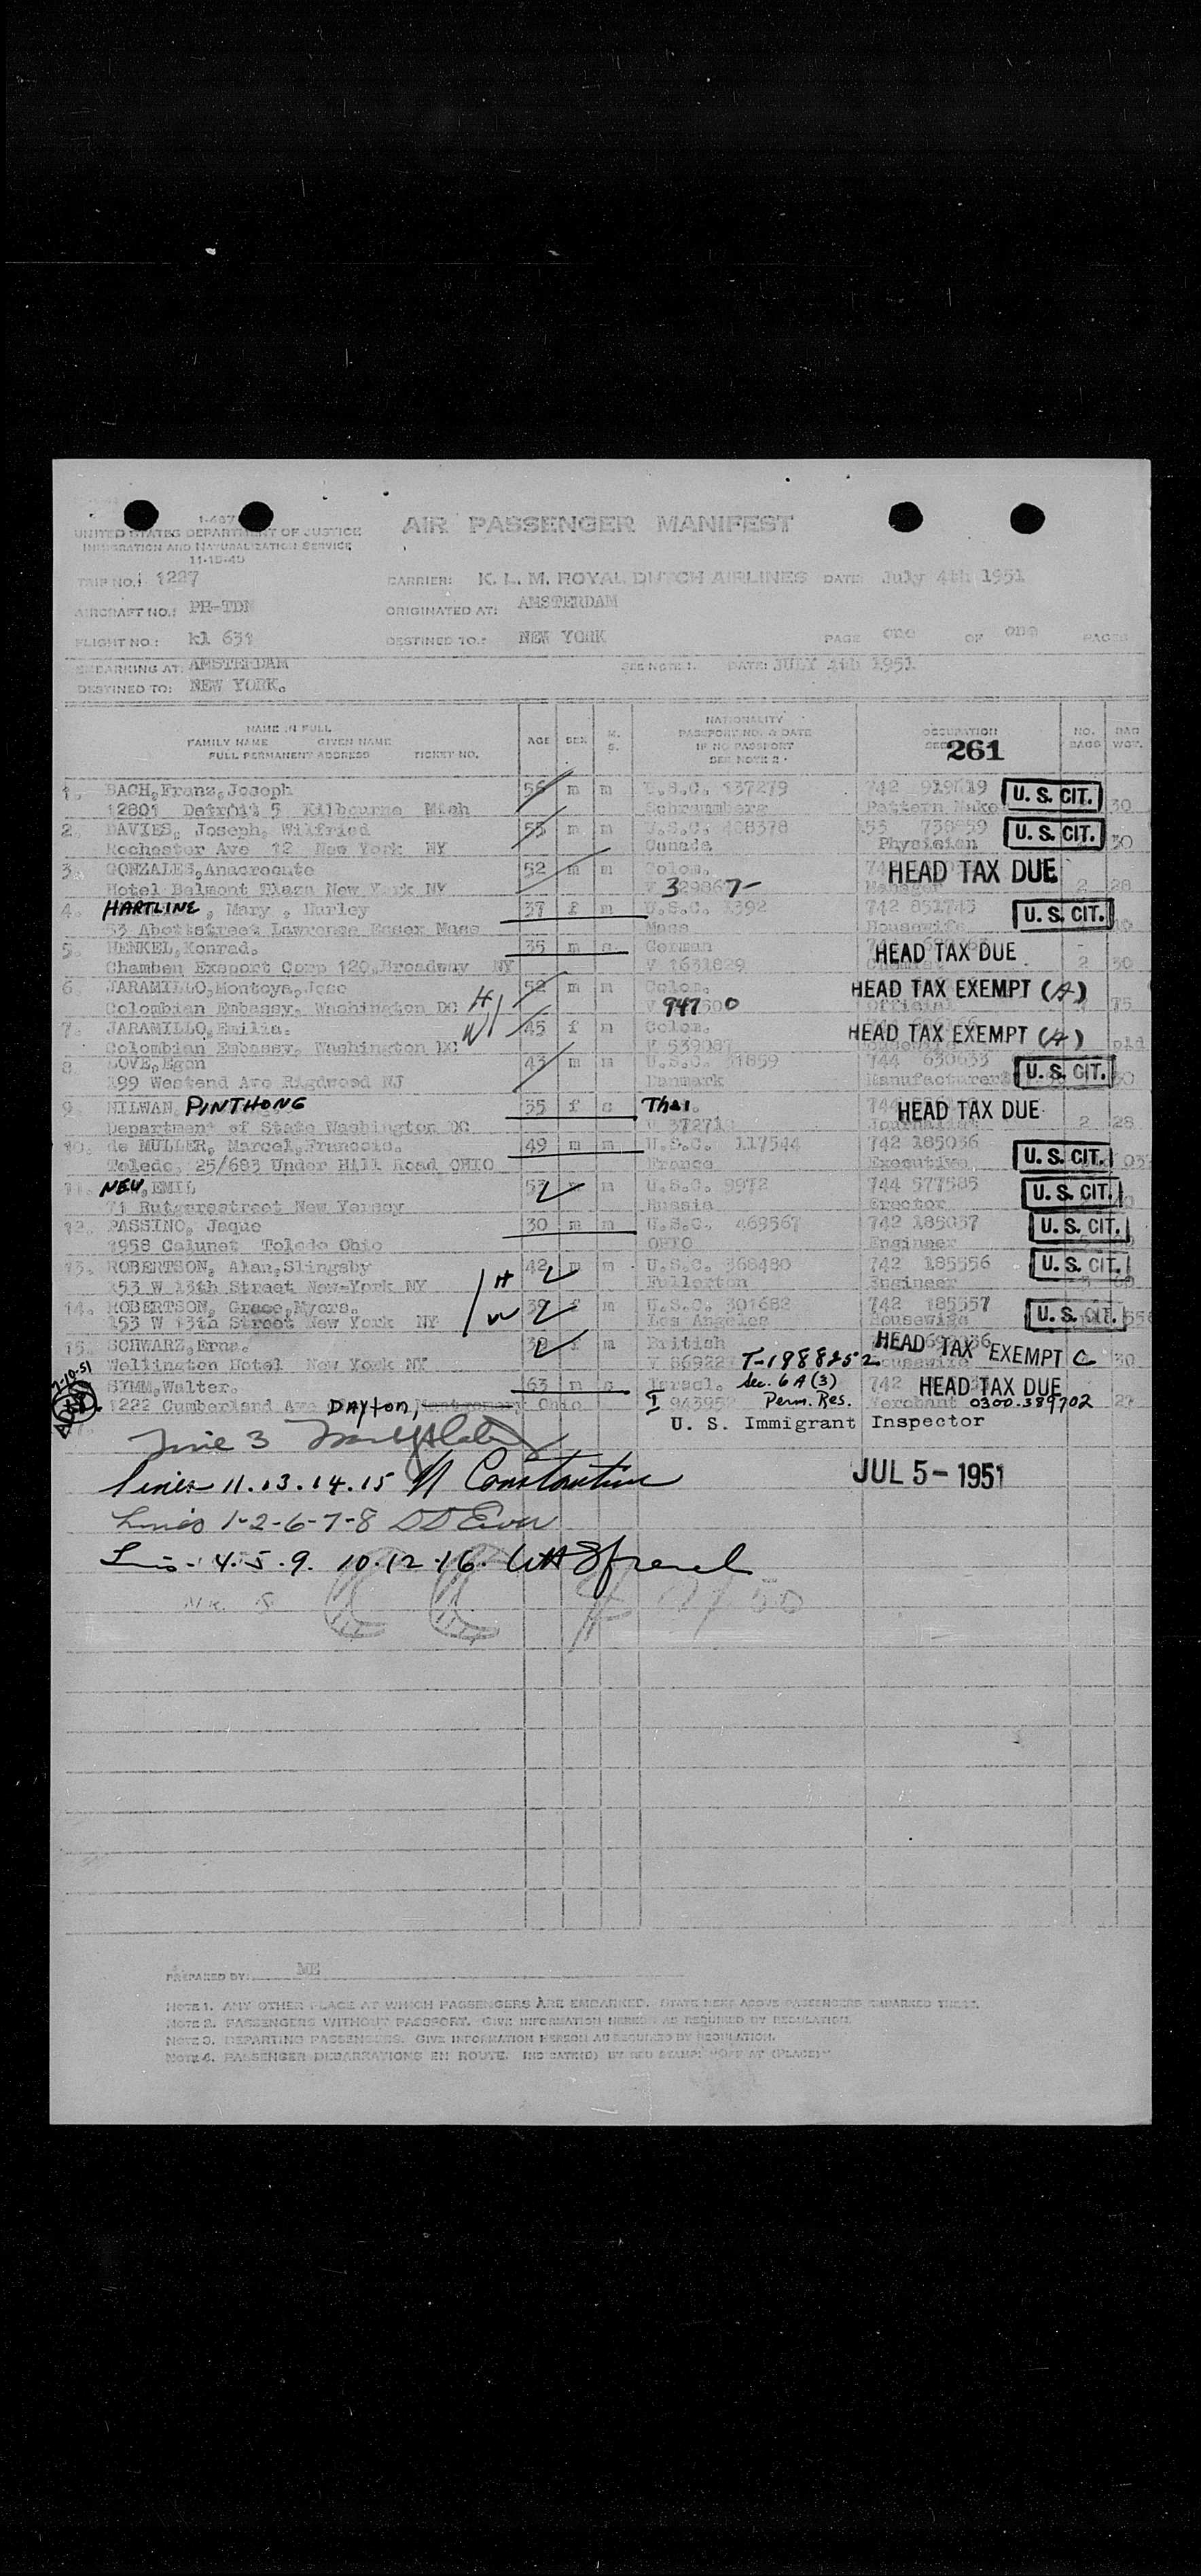 1-467
UNITED STATES DEPARTMENT OF JUSTICE
IMMIGRATION AND NATURALIZATION SERVICE
11-15-45
AIR PASSENGER MANIFEST
TRIP NO.: 1227 CARRIER: K. L. M. ROYAL DUTCH AIRLINES DATE: July 4th 1951
AIRCRAFT NO.: PH-TDN ORIGINATED AT: AMSTERDAM
FLIGHT NO.: kl 631 DESTINED TO.: NEW YORK PAGE one OF one PAGES
EMBARKING AT: AMSTERDAM SEE NOTE 1. DATE: JULY 4th 1951
DESTINED TO: NEW YORK.
NAME IN FULL
FAMILY NAME GIVEN NAME
FULL PERMANENT ADDRESS TICKET NO.
AGE SEX M. S.
NATIONALITY
PASSPORT NO. & DATE
IF NO PASSPORT
SEE NOTE 2.
OCCUPATION
261
NO. BAGS BAG WGT.
1. BACH, Franz, Joseph 56 m m U.S.C. 137279 742 U. S. CIT.
12801 Detroit 5 Kilbourne Mich Schrammberg Pattern Make 30
2. DAVIES, Joseph, Wilfried 55 m m U.S.C. 408378 U. S. CIT.
Rochester Ave 12 New York NY Canada Physician 30
3. GONZALES, Anacreonte 52 m m Colom. HEAD TAX DUE
Hotel Belmont Plaza New York NY V 329867 Manager 2 28
4. HARTLINE, Mary, Hurley 37 f m U.S.C. 1392 742 851743 U. S. CIT.
53 Abottstreet Lawrence Essex Mass Mass Housewife
5. HENKEL, Konrad. 35 m s German HEAD TAX DUE
Chamben Exsport Corp 120, Broadway NY V 1631829 Chemist 2 30
6. JARAMILLO, Montoya, Jose 52 m m Colom. HEAD TAX EXEMPT (A)
Colombian Embassy, Washington DC H Official 75
7. JARAMILLO, Emilia. W 45 f m Colom. HEAD TAX EXEMPT (A)
Colombian Embassy, Washington DC V 539087 pld
8. LOVE, Egon 43 m m U.S.C. 31859 744 630633 U. S. CIT.
199 Westend Ave Rigdwood NJ Danmark Manufacturer 30
9. NILWAN PINTHONG 35 f s Thai HEAD TAX DUE
Department of State Washington DC V 37271 Journalist 2 28
10. de MULLER, Marcel, Francois. 49 m m U.S.C. 117544 742 185036 U. S. CIT.
Toledo, 25/683 Under Hill Road OHIO France Executive
11. NEU, EMIL 53 m U.S.C. 9972 744 577585 U. S. CIT.
71 Rutgerestreet New Yersey Russia Erector
12. PASSINO, Jaque 30 m m U.S.C. 469567 742 185037 U. S. CIT.
1958 Calunet Toledo Ohio OHIO Engineer
13. ROBERTSON, Alan, Slingsby 42 m m U.S.C. 368480 742 185556 U. S. CIT.
153 W 13th Street New-York NY H Fullerton Engineer
14. ROBERTSON, Grace, Myers. 39 f m U.S.C. 301682 742 185557 U. S. CIT.
153 W 13th Street New York NY W Los Angeles Housewife
15. SCHWARZ, Erna. f m British HEAD TAX EXEMPT C
Wellington Hotel New York NY T-1988252 30
7-10-51
SYMM, Walter. 63 m s Israel. Sec. 6A(3) 742 HEAD TAX DUE
1222 Cumberland Ave Dayton, Ohio I Perm. Res. Merchant 0300-389702
U. S. Immigrant Inspector
Line 3
JUL 5 - 1951
Lines 11.13.14.15 N Constantine
Lines 1-2-6-7-8
Lines 4.5.9. 10.12.16.
PREPARED BY: ME
NOTE 1. ANY OTHER PLACE AT WHICH PASSENGERS ARE EMBARKED. STATE NEXT ABOVE PASSENGERS EMBARKED THERE.
NOTE 2. PASSENGERS WITHOUT PASSPORT. GIVE INFORMATION HEREON AS REQUIRED BY REGULATION.
NOTE 3. DEPARTING PASSENGERS. GIVE INFORMATION HEREON AS REQUIRED BY REGULATION.
NOTE 4. PASSENGER DEBARKATIONS EN ROUTE. INDICATE(D) BY RED STAMP: "OFF AT (PLACE)"